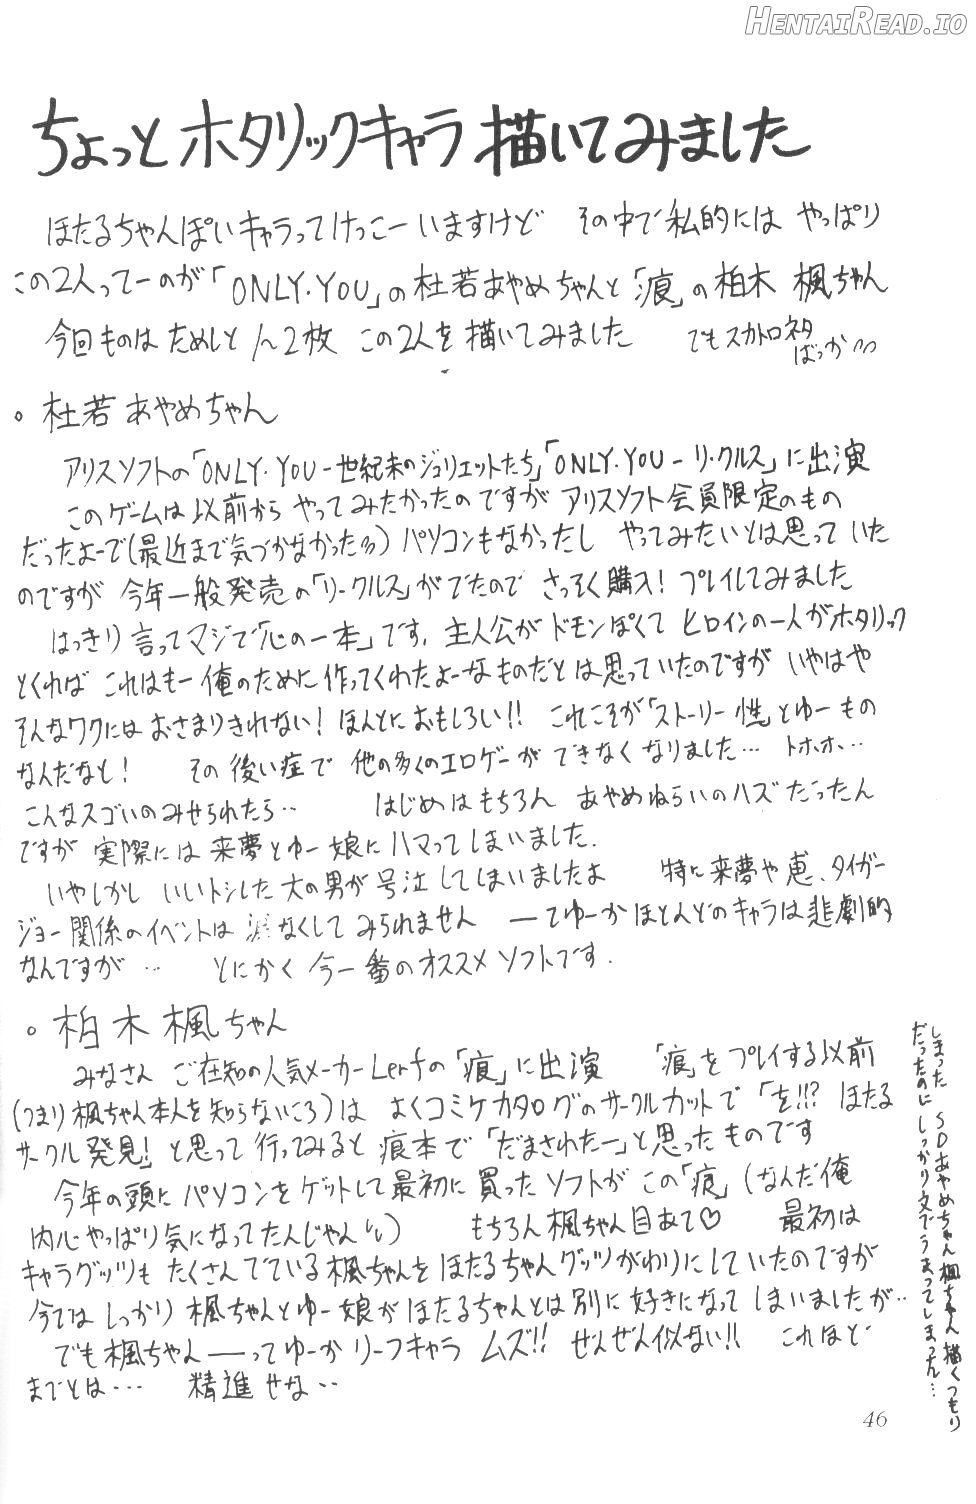 HENTAIREAD.IO
ちょっとホタリックキャラ描いてみました
ほたるちゃんぽいキャラってけっこーいますけど その中で私的には やっぱり
この2人ってーのが「ONLY.YOU」の杜若あやめちゃんと「痕」の柏木 楓ちゃん
今回ものは ためしと 2枚 この2人を描いてみました でもスカトロネタ
ばっか
。杜若あやめちゃん
アリスソフトの「ONLY.YOU-世紀末のジュリエットたち」「ONLY.YOU-リ・クルス」に出演
このゲームは以前から やってみたかったのですが アリスソフト会員限定のもの
だったよーで(最近まで気づかなかった) パソコンもなかったし やってみたいとは思っていた
のですが 今年一般発売の「リ・クルス」がでたので さっそく購入! プレイしてみました
はっきり言ってマジで「心の一本」です. 主人公が ドモンぽくて ヒロインの一人がホタリック
とくれば これはもー俺のために作ってくれたよーなものだとは思っていたのですが いやはや
そんなワクにはおさまりきれない! ほんとにおもしろい!! これこそが「ストーリー性」とゆーもの
なんだなと! その後い症で 他の多くのエロゲーが できなくなりました… トホホ…
こんなスゴいのみせられたら‥ はじめはもちろん あやめねらいのハズだったん
ですが 実際には 来夢とゆー娘にハマってしまいました.
いやしかし いいトシした大の男が号泣してしまいましたよ 特に来夢や恵、タイガー
ジョー関係のイベントは 涙なくしてみられません ーてゆーかほとんどのキャラは悲劇的
なんですが… とにかく 今一番のオススメソフトです.
。柏木 楓ちゃん
みなさん ご在知の人気メーカーLerfの「痕」に出演 「痕」をプレイする以前
(つまり楓ちゃん本人を知らないころ)は よくコミケカタログのサークルカットで 「を!!? ほたる
サークル発見!」と思って行ってみると 痕本で「だまされたー」と思ったものです
今年の頭にパソコンをゲットして最初に買ったソフトがこの「痕」(なんだ俺
内心やっぱり気になってたんじゃん) もちろん楓ちゃん目あて♡ 最初は
キャラグッツもたくさんでている楓ちゃんをほたるちゃんグッツがわりにしていたのですが
今ではしっかり楓ちゃんとゆー娘がほたるちゃんとは別に好きになってしまいましたが‥
でも楓ちゃんーってゆーか リーフキャラ ムズ!! ぜんぜん似ない!! これほど
までとは… 精進せな‥
しまった SDあやめちゃん楓ちゃん描くつもり
だったのにしっかり文でうまってしまった…
46